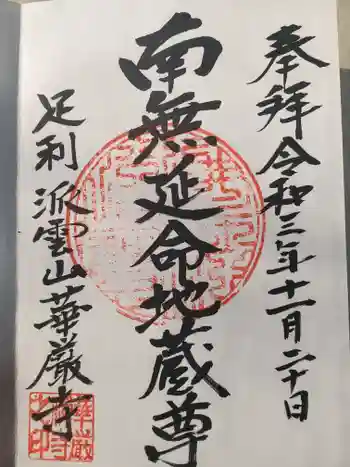 奉拝令和三年十一月二十日
南無延命地蔵尊
足利派雲山華厳寺